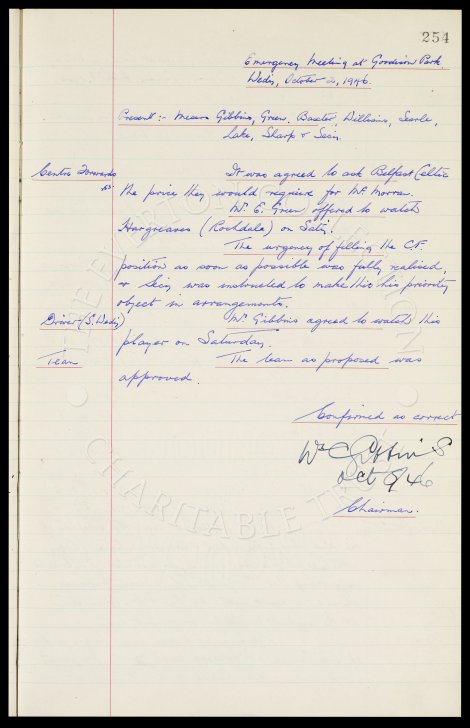 254
Emergency Meeting at Goodison Park,
Wedy, October 2, 1946.
Present :- Messrs Gibbins, Green, Baxter, Williams, Searle,
Lake, Sharp & Secy.
Centre Forwards It was agreed to ask Belfast Celtic
the price they would require for McMorran.
Mr. E. Green offered to watch
Hargreaves (Rochdale) on Saty.
The urgency of filling the C.F.
position as soon as possible was fully realised,
& Secy was instructed to make this his priority
object in arrangements.
Driver (S. Wedy) Mr Gibbins agreed to watch this
player on Saturday.
Team The team as proposed was
approved.
Confirmed as correct
Wm C Gibbins
Oct 9/46
Chairman.
THE EVERTON COLLECTION
CHARITABLE TRUST